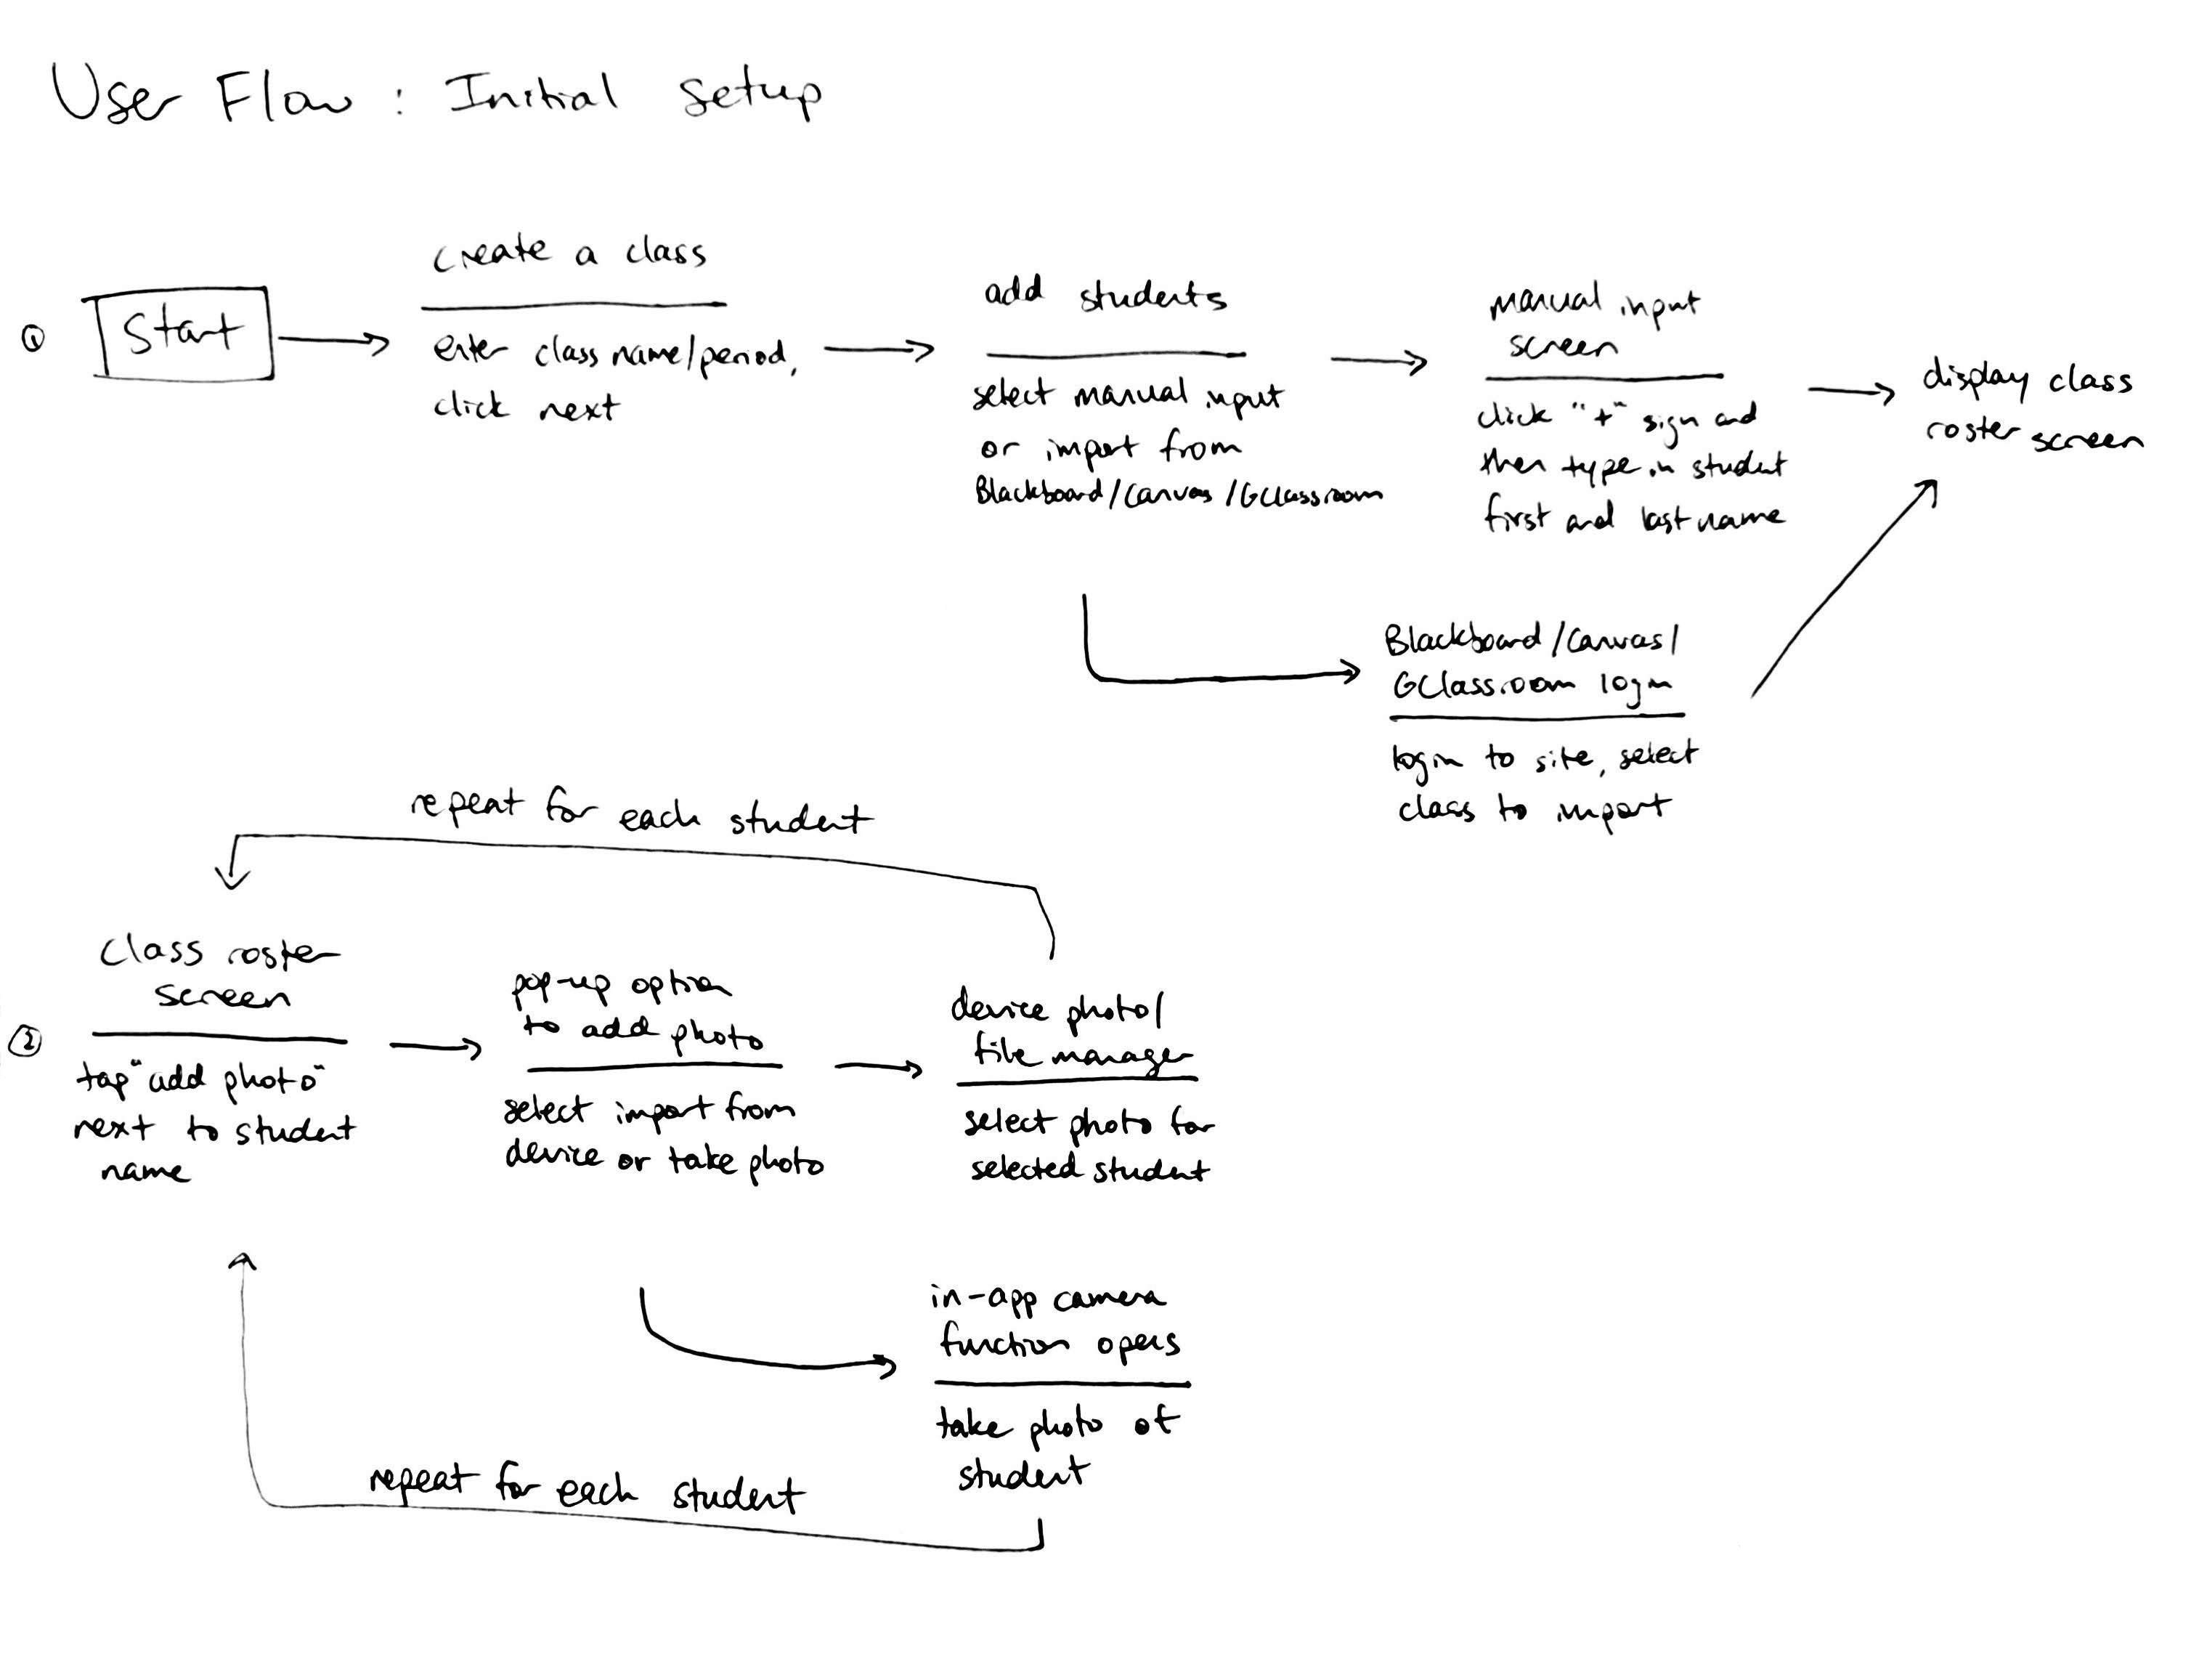 User Flow : Initial Setup
①
Start
create a class
enter class name/period,
click next
add students
select manual input
or import from
Blackboard/Canvas/GClassroom
manual input
screen
click "+" sign and
then type in student
first and last name
display class
roster screen
Blackboard/Canvas/
GClassroom login
login to site, select
class to import
repeat for each student
②
Class roster
screen
tap "add photo"
next to student
name
pop-up option
to add photo
select import from
device or take photo
device photo/
file manager
select photo for
selected student
in-app camera
function opens
take photo of
student
repeat for each student